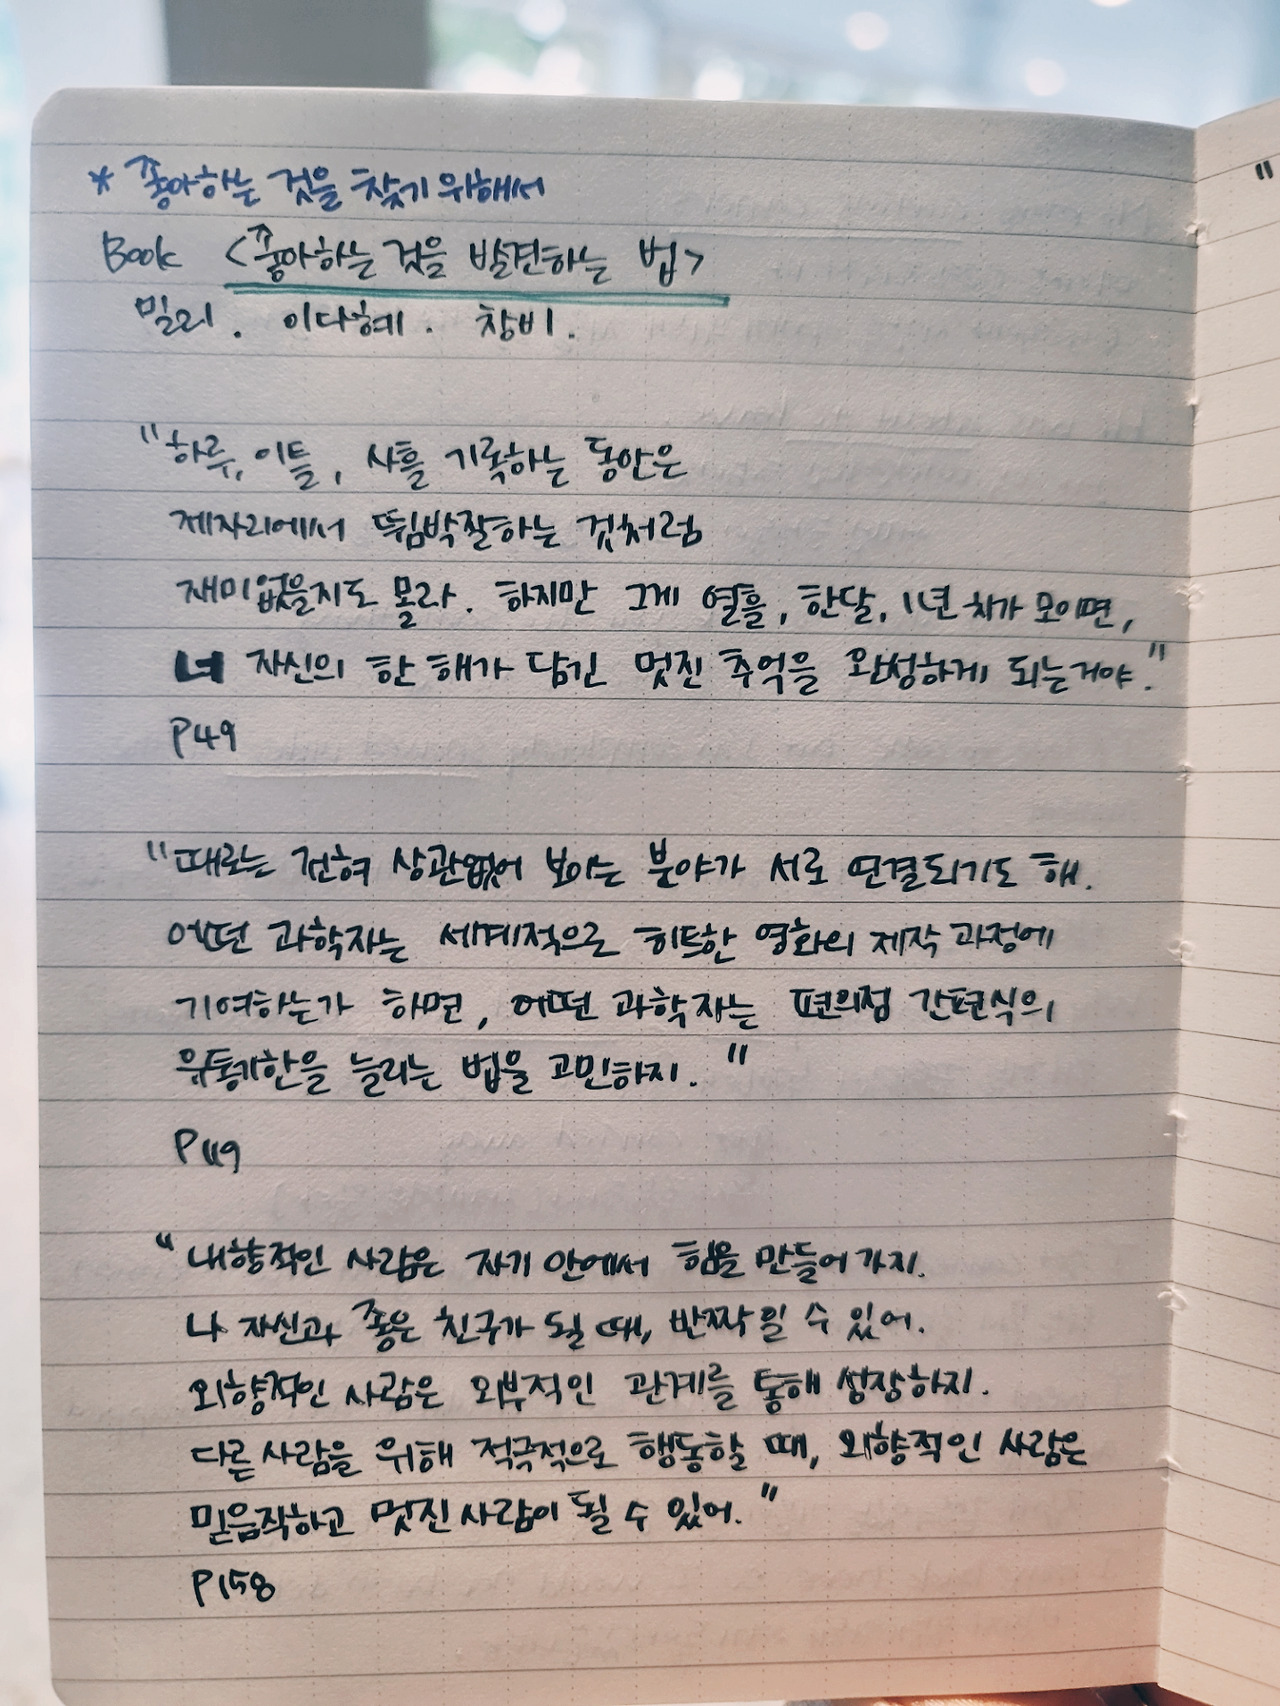 * 좋아하는 것을 찾기 위해서
Book <좋아하는 것을 발견하는 법>
밀리. 이다혜. 창비.
"하루, 이틀, 사흘 기록하는 동안은
제자리에서 뜀박질하는 것처럼
재미없을지도 몰라. 하지만 그게 열흘, 한달, 1년 치가 모이면,
너 자신의 한 해가 담긴 멋진 추억을 완성하게 되는거야."
P49
"때로는 전혀 상관없어 보이는 분야가 서로 연결되기도 해.
어떤 과학자는 세계적으로 히트한 영화의 제작 과정에
기여하는가 하면, 어떤 과학자는 편의점 간편식의
유통기한을 늘리는 법을 고민하지."
P119
"내향적인 사람은 자기 안에서 힘을 만들어 가지.
나 자신과 좋은 친구가 될 때, 반짝일 수 있어.
외향적인 사람은 외부적인 관계를 통해 성장하지.
다른 사람을 위해 적극적으로 행동할 때, 외향적인 사람은
믿음직하고 멋진 사람이 될 수 있어."
P158
"